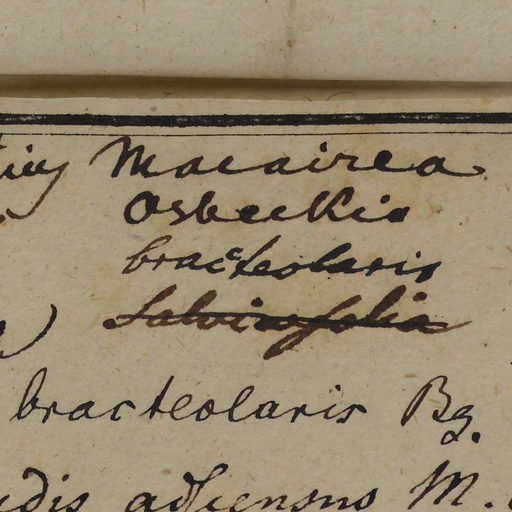 Macairea
Osbeckia
bracteolaris
Salviaefolia
bracteolaris Bg.
adscensus M.